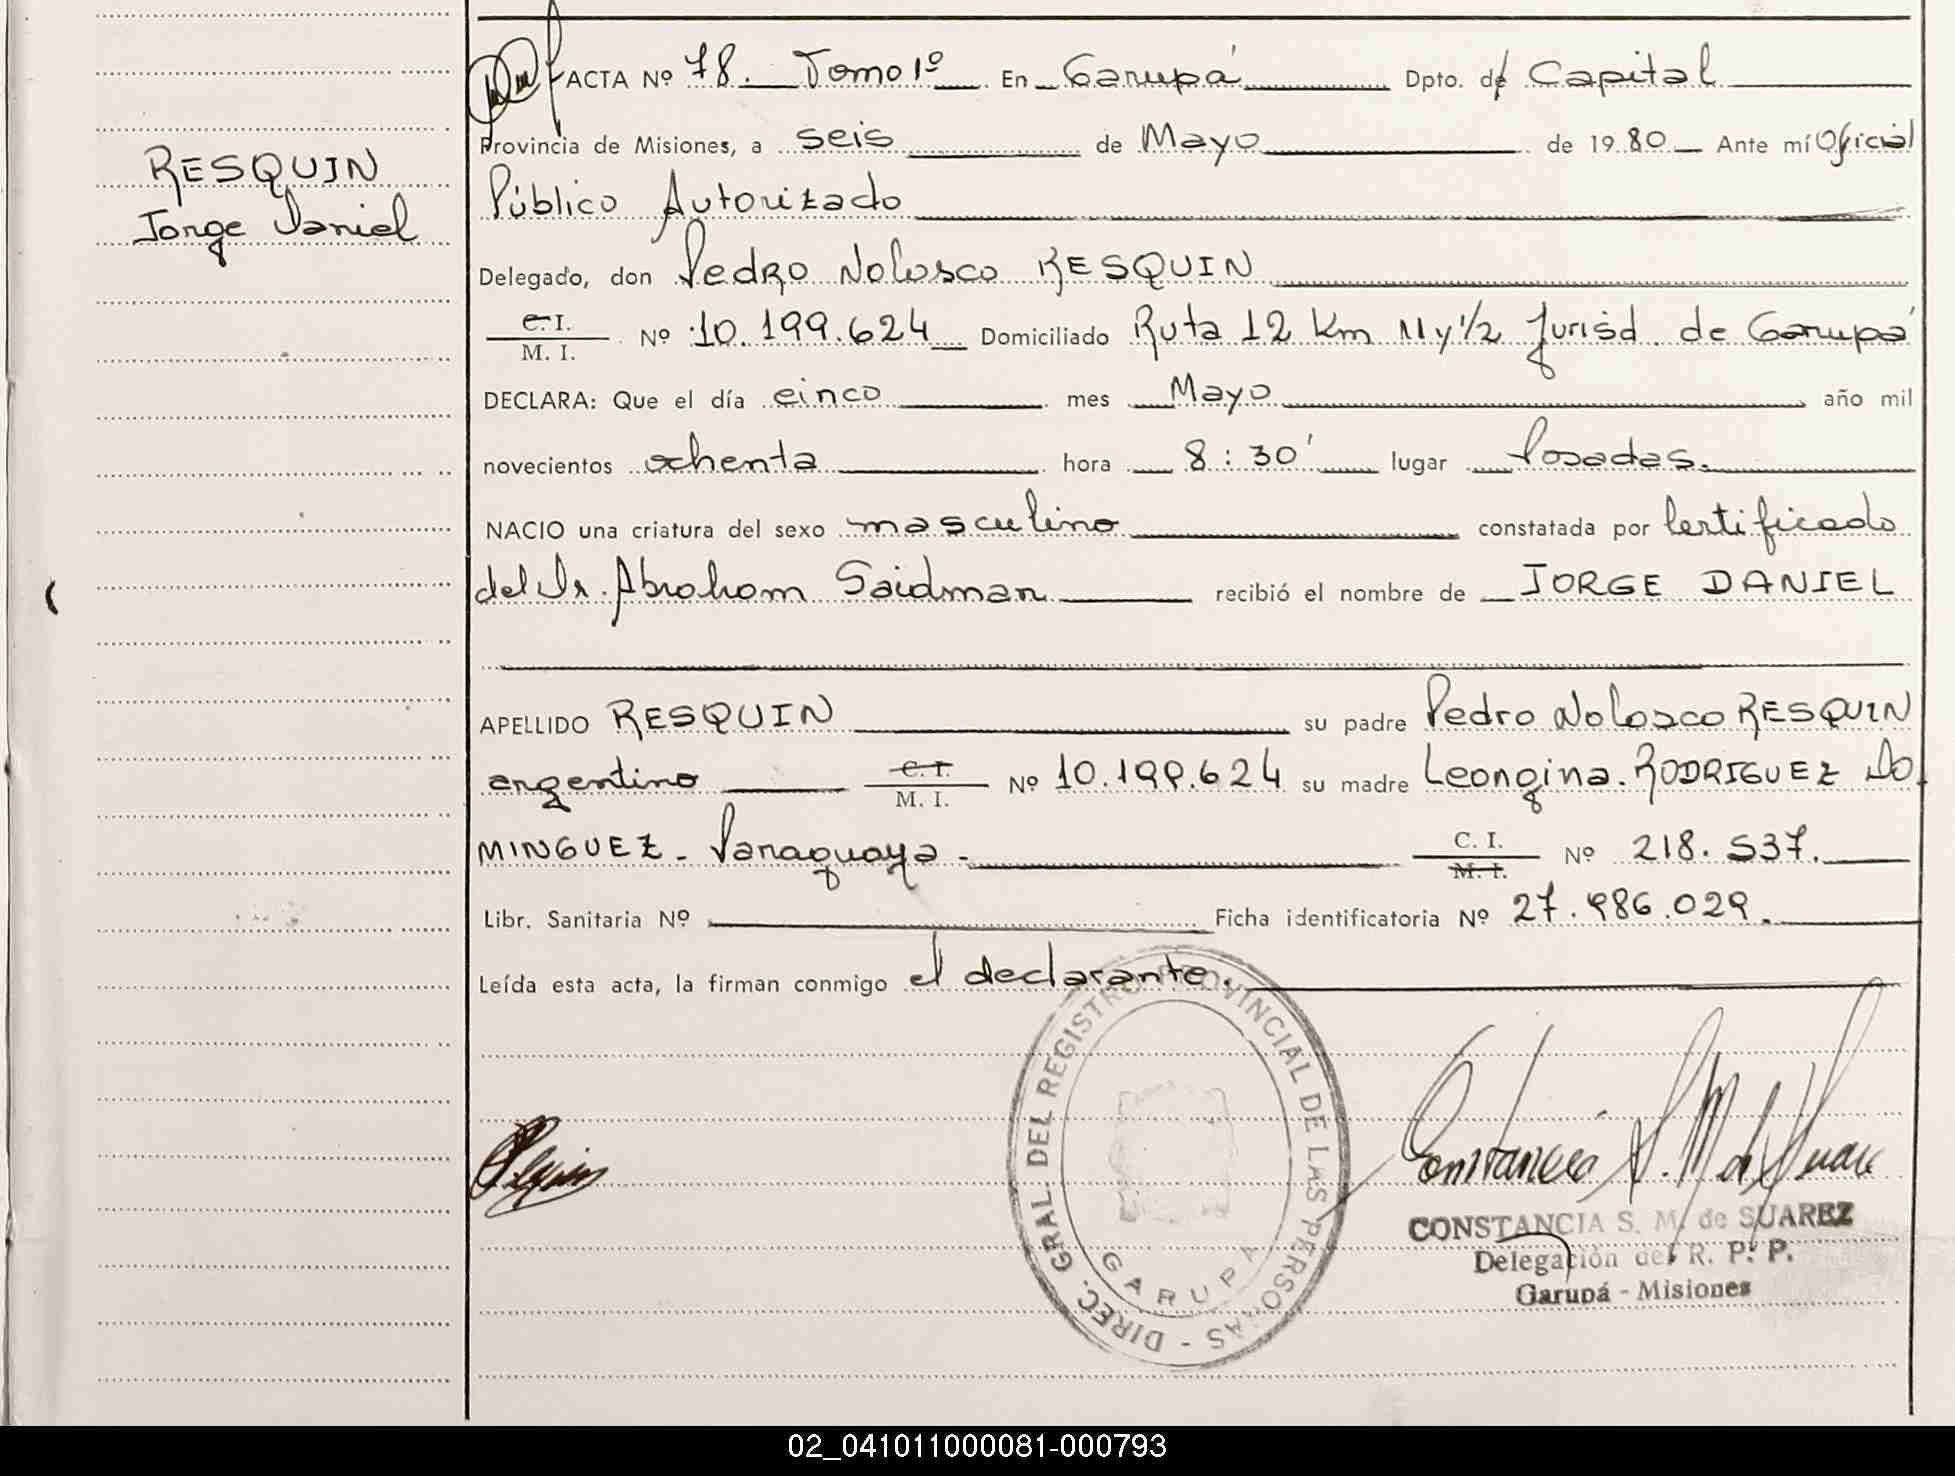 RESQUIN
Jorge Daniel
ACTA Nº 78. Tomo 1º En Garupá Dpto. de Capital
Provincia de Misiones, a seis de Mayo de 19 80 Ante mí Oficial
Público Autorizado
Delegado, don Pedro Nolosco RESQUIN
C. I.
M. I. Nº 10.199.624 Domiciliado Ruta 12 Km 11 y 1/2 Jurisd. de Garupá
DECLARA: Que el día cinco mes Mayo año mil
novecientos ochenta hora 8:30' lugar Posadas.
NACIO una criatura del sexo masculino constatada por Certificado
del Dr. Abraham Saidman recibió el nombre de JORGE DANIEL
APELLIDO RESQUIN su padre Pedro Nolosco RESQUIN
argentino C. I.
M. I. Nº 10.199.624 su madre Leongina RODRIGUEZ DO
MINGUEZ - Paraguaya - C. I.
M. I. Nº 218.537.
Libr. Sanitaria Nº Ficha identificatoria Nº 27.986.029.
Leída esta acta, la firman conmigo el declarante.
DIREC. GRAL. DEL REGISTRO PROVINCIAL DE LAS PERSONAS -
GARUPA
Constancia S. M. de Suarez
CONSTANCIA S. M. de SUAREZ
Delegación del R. P. P.
Garupá - Misiones
02_041011000081-000793